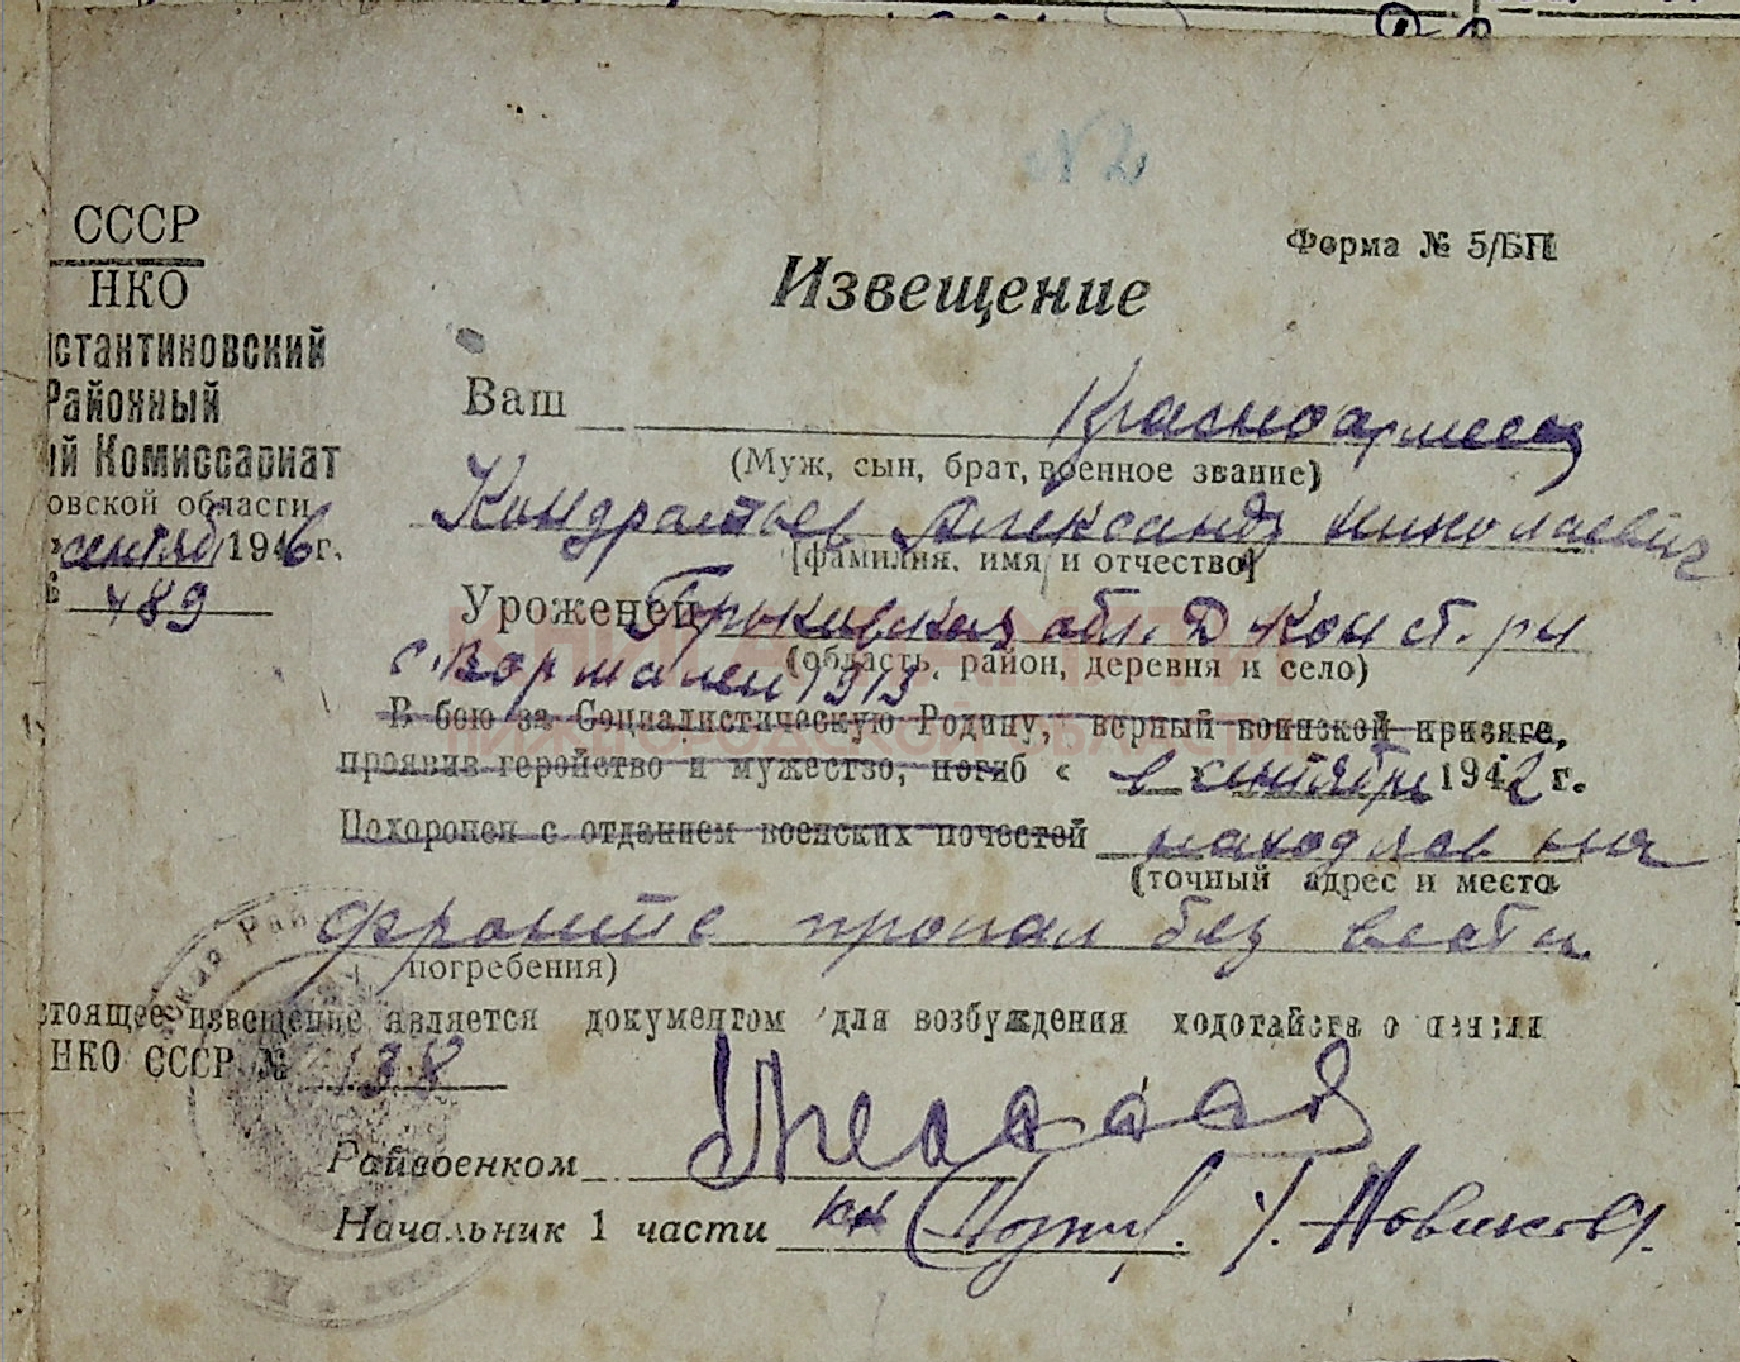 № 2
СССР
НКО
нстантиновский
Районный
ый Комиссариат
овской области
сентяб 1946 г.
489
Форма № 5/БП
Извещение
Ваш Красноармеец
(Муж, сын, брат, военное звание)
Кондратьев Александр Николаевич
(фамилия, имя и отчество)
Уроженец Горьковская обл. Д Конст. рн
(область, район, деревня и село)
с. Вормалеи 1913.
В бою за Социалистическую Родину, верный воинской присяге,
проявив геройство и мужество, погиб « в сентябре 1942 г.
Похоронен с отданием воинских почестей находясь на
(точный адрес и место
фронте пропал без вести.
погребения)
стоящее извещение является документом для возбуждения ходотайства о пензии
НКО СССР № 138
Райвоенком
Начальник 1 части Новиков
КНИГА ПАМЯТИ
НИЖЕГОРОДСКОЙ ОБЛАСТИ